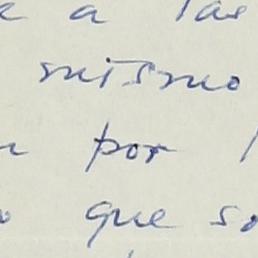 a las
mismo
por
que